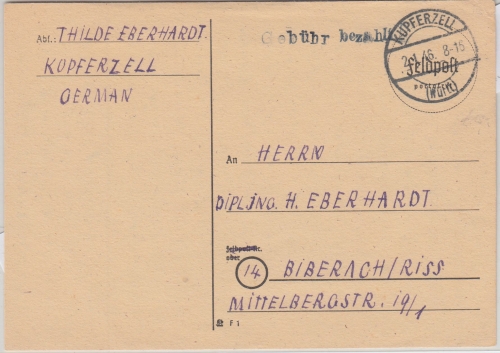 Abs.: THILDE EBERHARDT.
KUPFERZELL
GERMAN
Gebühr bezahlt
KUPFERZELL
2.1.46. 8-16
(Württ)
Feldpost
An HERRN
DIPL.ING. H. EBERHARDT.
oder
14 BIBERACH/RISS
MITTELBERGSTR. 19/1
F 1